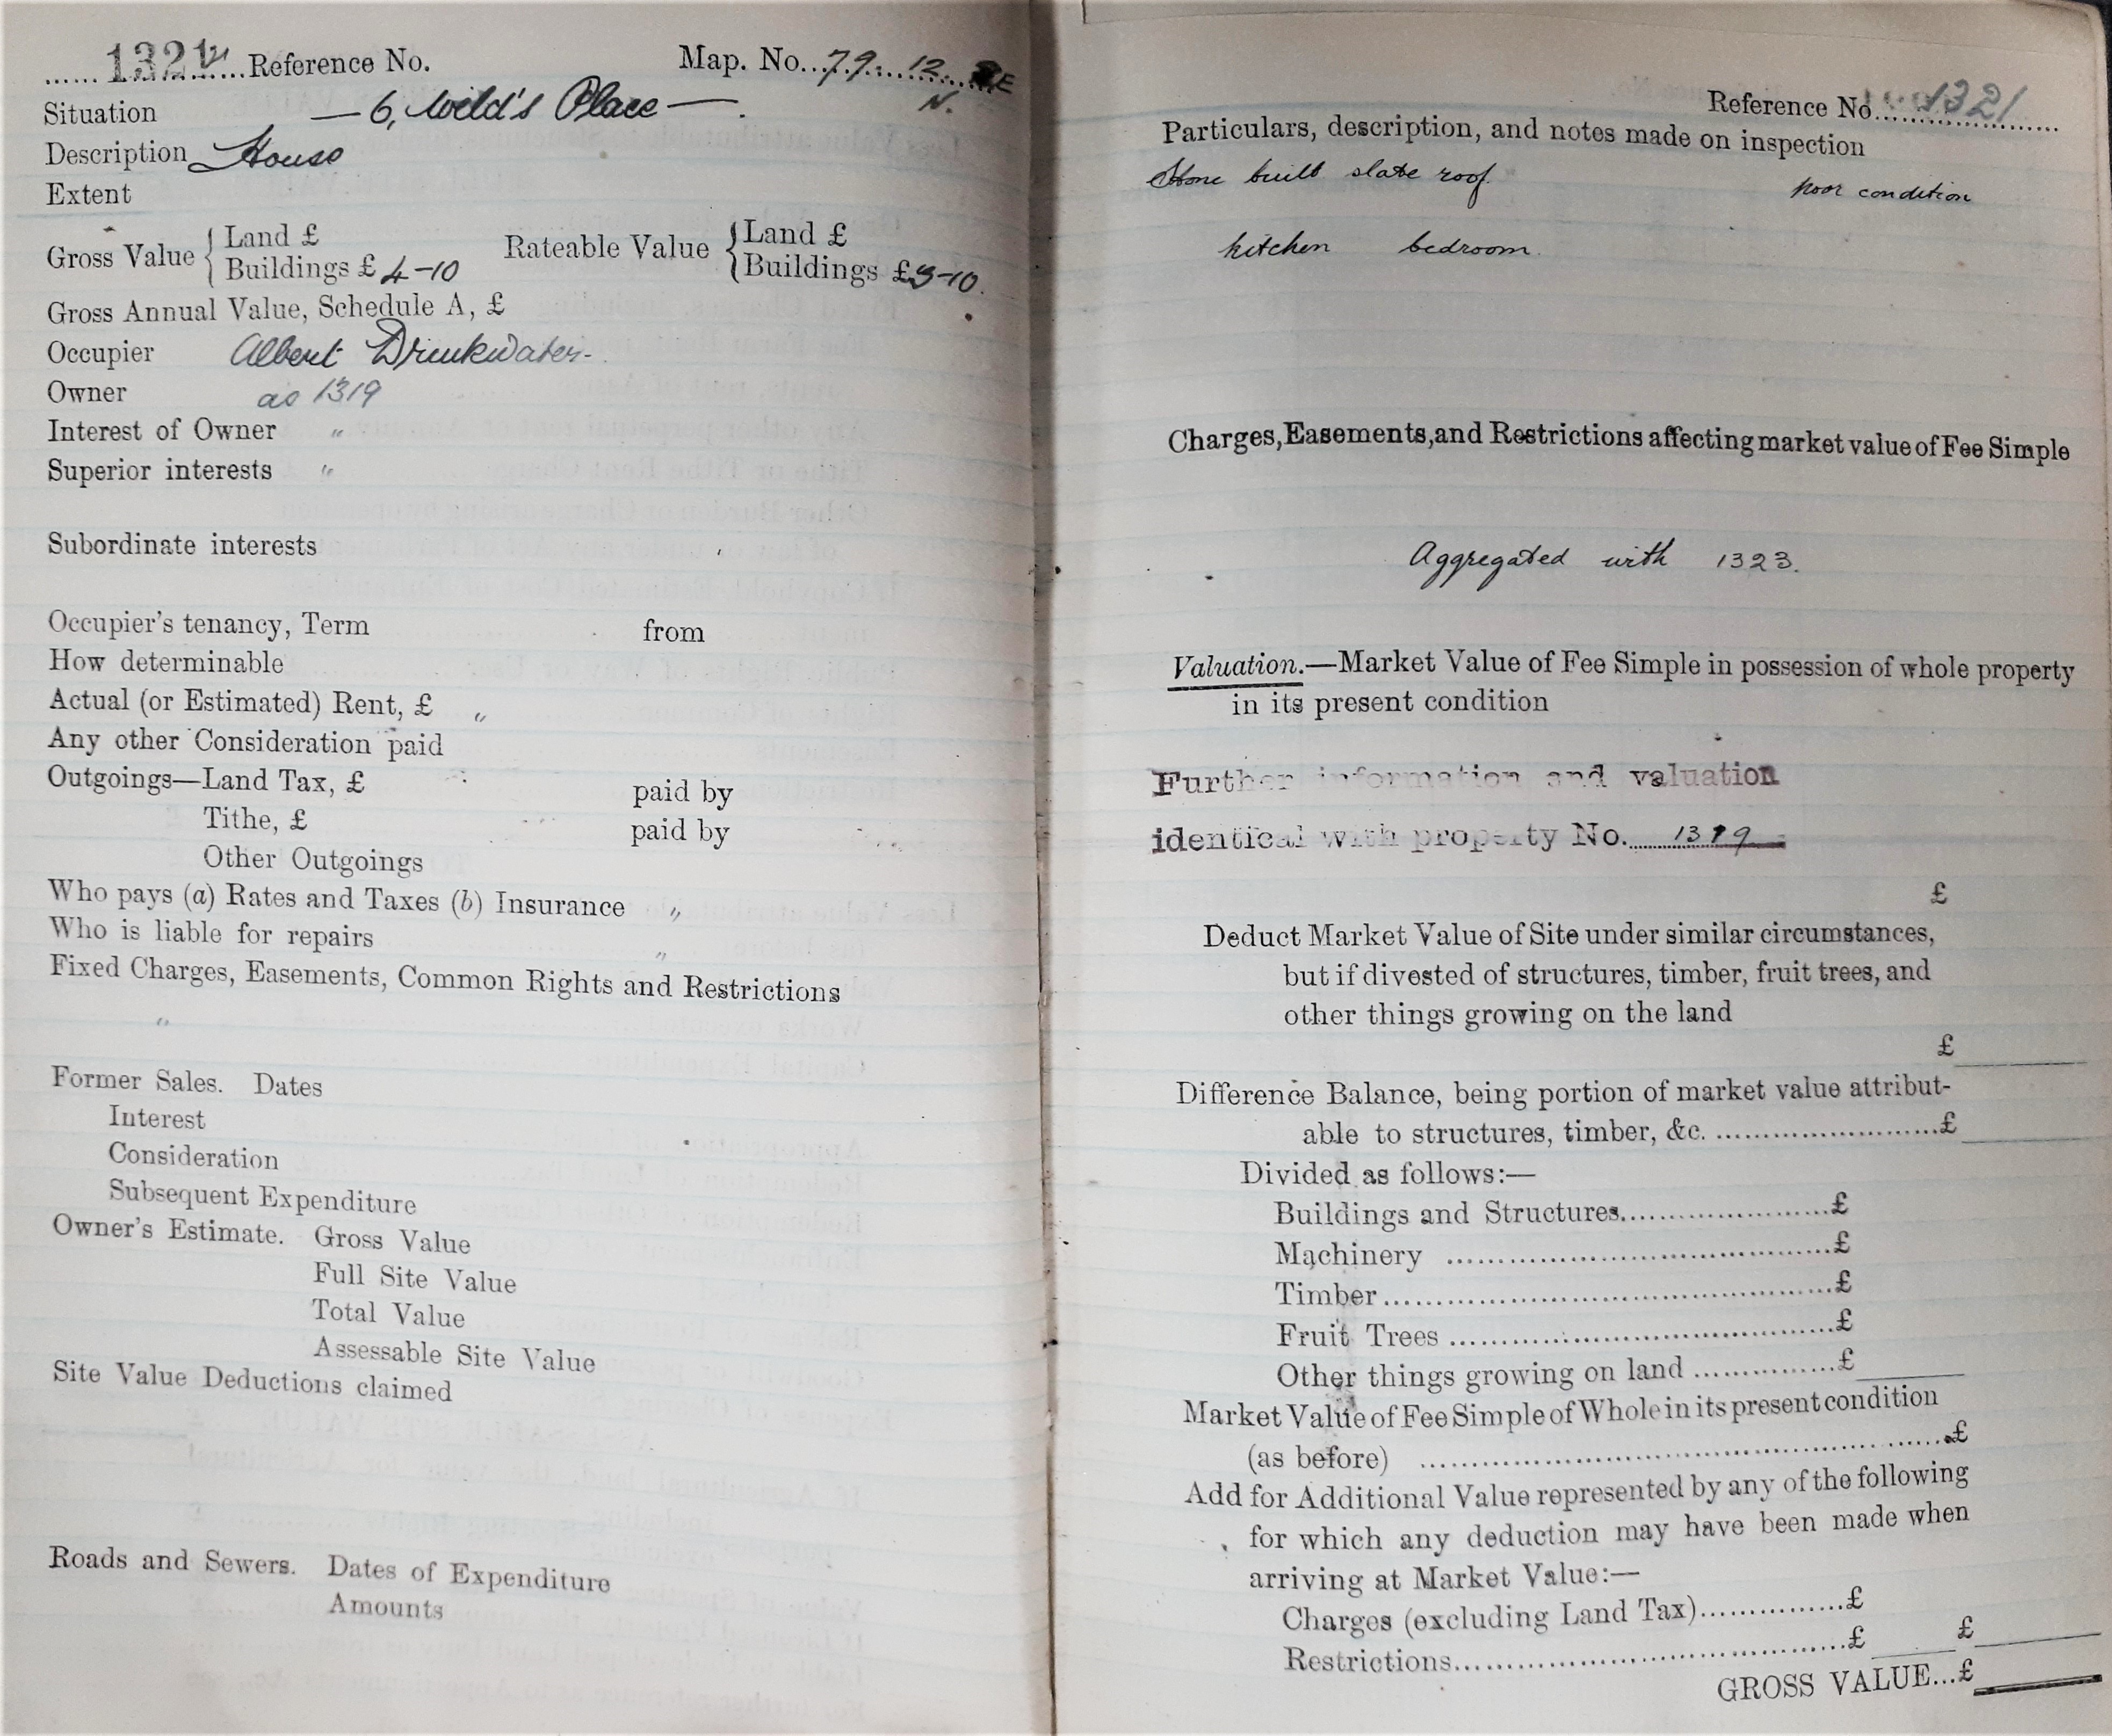 1321 Reference No. Map. No. 79. 12. NE
Situation — 6, Wild's Place —
Description House
Extent
Gross Value { Land £
Buildings £ 4-10
Rateable Value { Land £
Buildings £ 3-10.
Gross Annual Value, Schedule A, £
Occupier Albert Drinkwater
Owner as 1319
Interest of Owner "
Superior interests "
Subordinate interests
Occupier's tenancy, Term from
How determinable
Actual (or Estimated) Rent, £ "
Any other Consideration paid
Outgoings—Land Tax, £ paid by
Tithe, £ paid by
Other Outgoings
Who pays (a) Rates and Taxes (b) Insurance "
Who is liable for repairs "
Fixed Charges, Easements, Common Rights and Restrictions
"
Former Sales. Dates
Interest
Consideration
Subsequent Expenditure
Owner's Estimate. Gross Value
Full Site Value
Total Value
Assessable Site Value
Site Value Deductions claimed
Roads and Sewers. Dates of Expenditure
Amounts
Reference No. 1321
Particulars, description, and notes made on inspection
Stone built slate roof. poor condition
kitchen bedroom.
Charges, Easements, and Restrictions affecting market value of Fee Simple
Aggregated with 1323.
Valuation.—Market Value of Fee Simple in possession of whole property
in its present condition
Further information and valuation
identical with property No. 1319
£
Deduct Market Value of Site under similar circumstances,
but if divested of structures, timber, fruit trees, and
other things growing on the land
£
Difference Balance, being portion of market value attribut-
able to structures, timber, &c. ........................£
Divided as follows:—
Buildings and Structures........................£
Machinery ........................£
Timber........................£
Fruit Trees ........................£
Other things growing on land ...............£
Market Value of Fee Simple of Whole in its present condition
(as before) ........................£
Add for Additional Value represented by any of the following
for which any deduction may have been made when
arriving at Market Value:—
Charges (excluding Land Tax)...............£
Restrictions........................£ £
GROSS VALUE...£